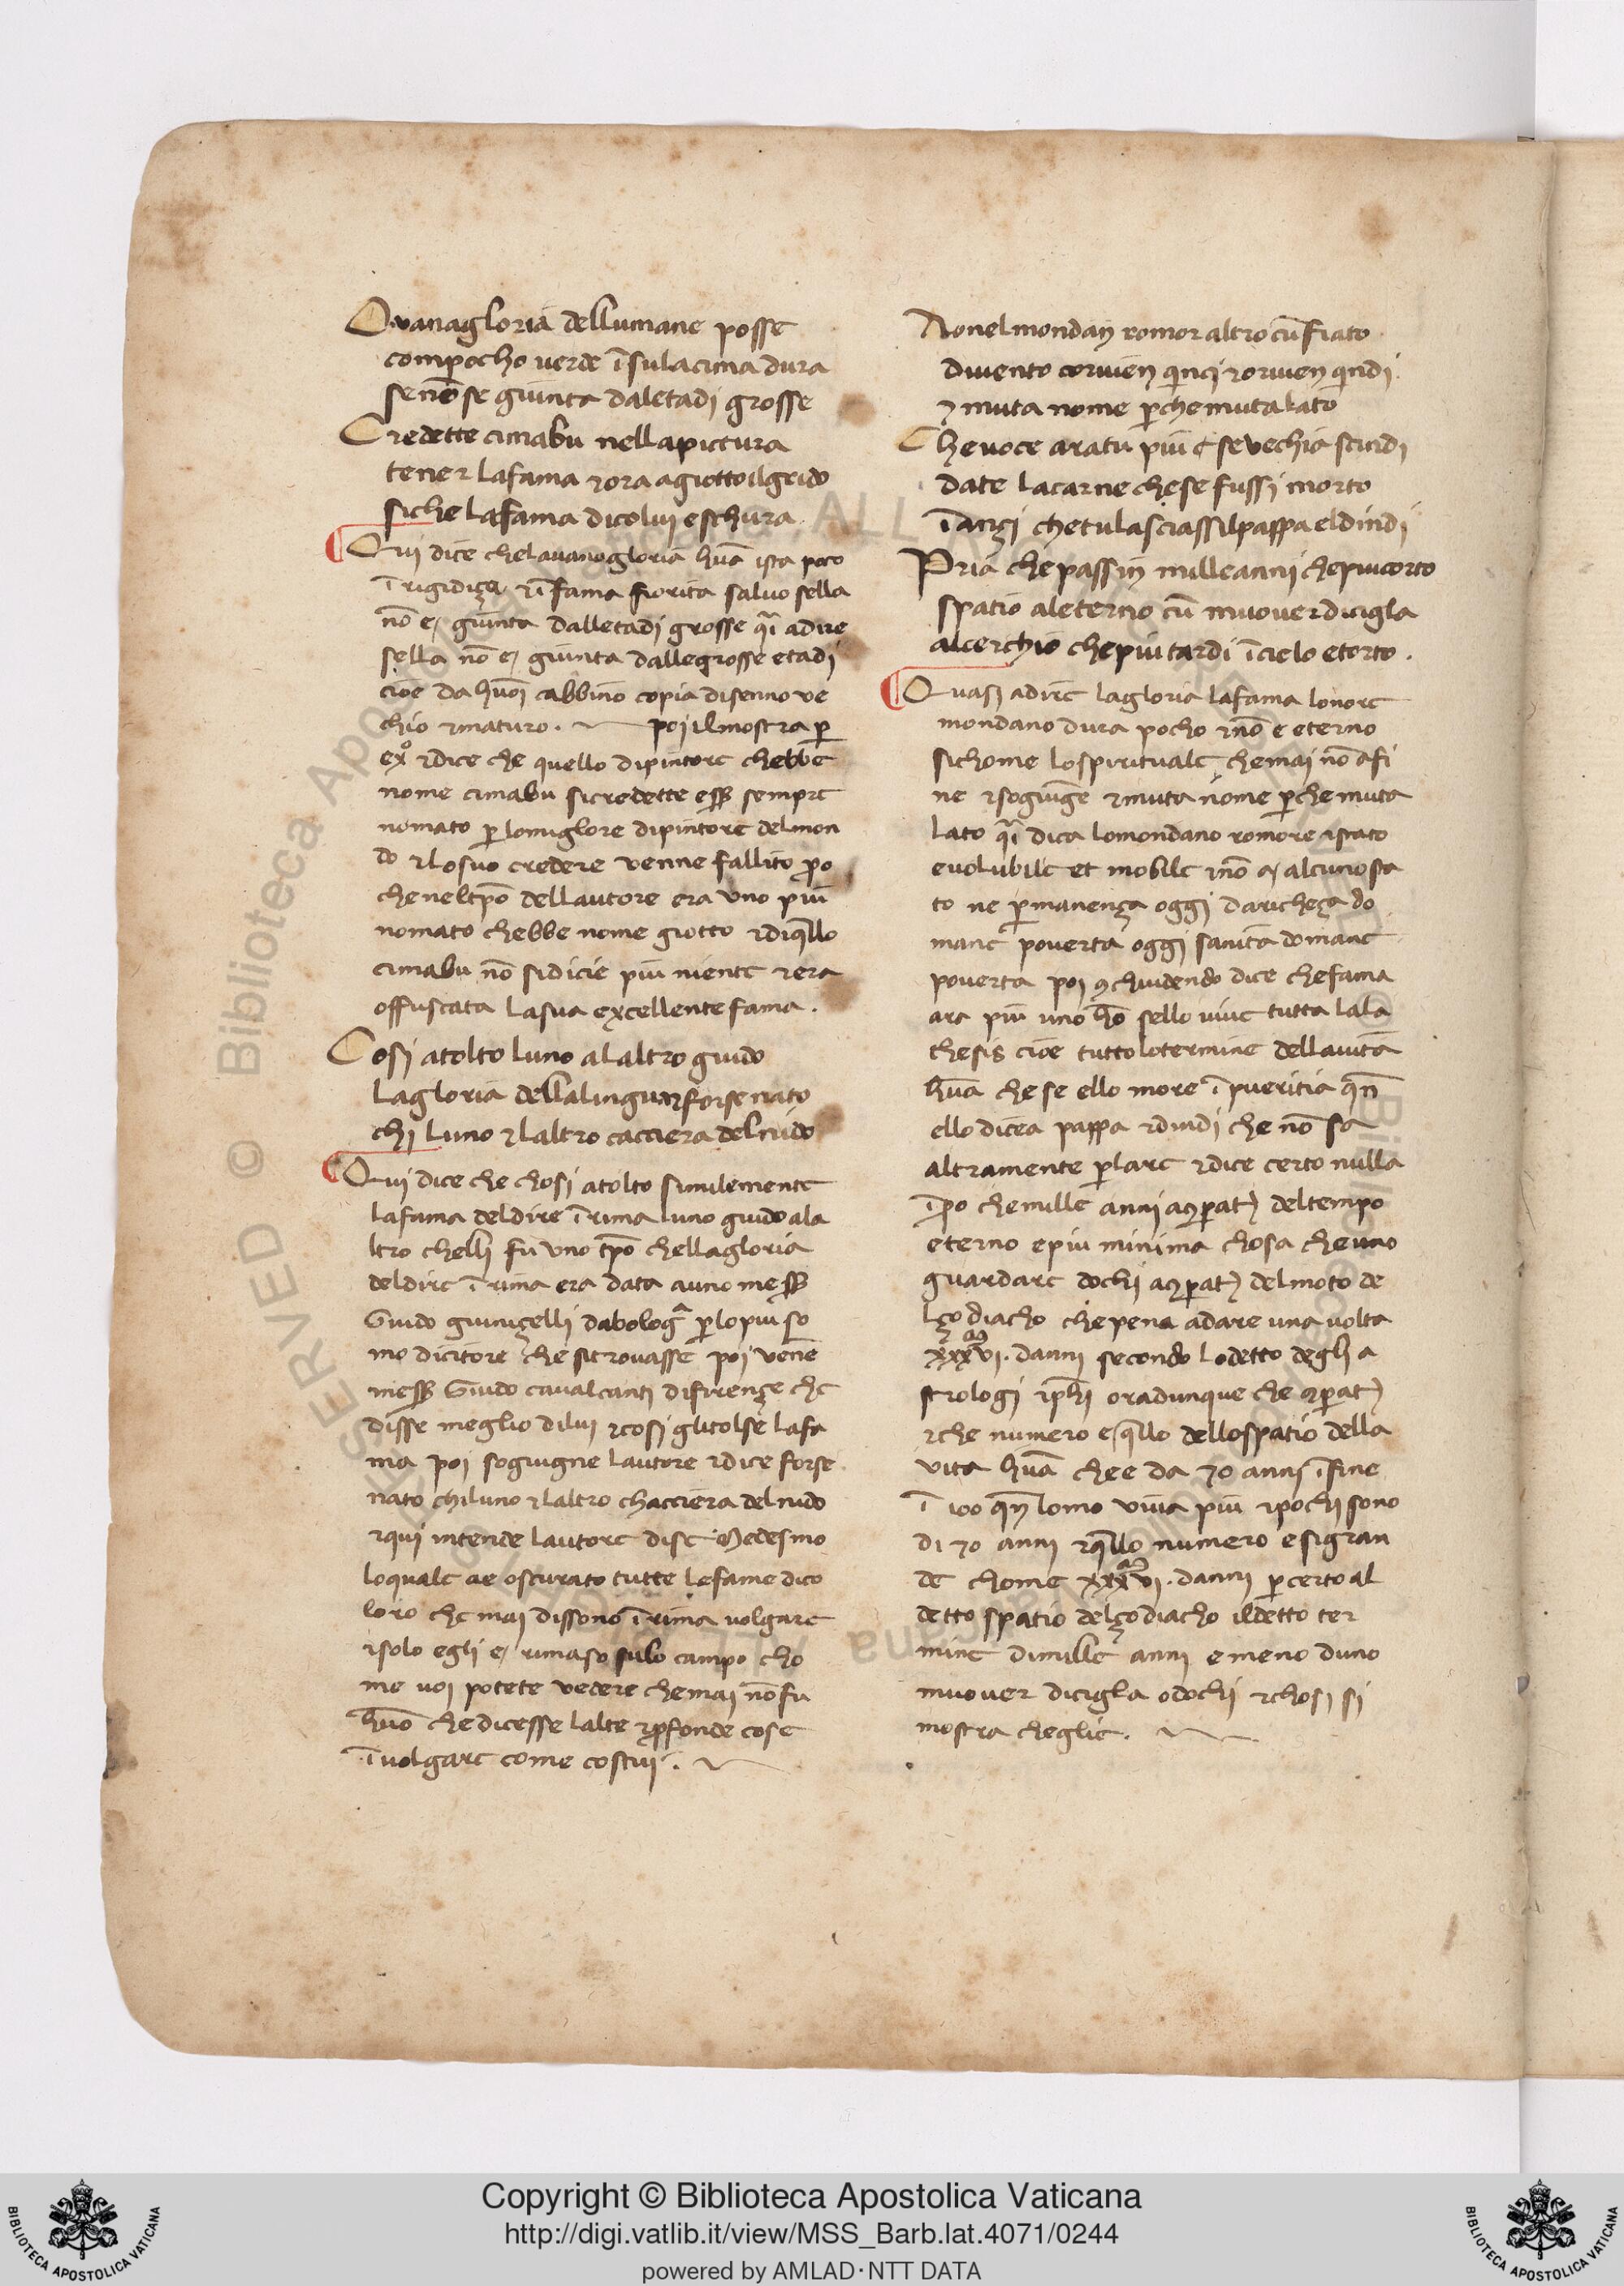 O vanagloria dellumane posse
compocho verde ĩsulacima dura
se nõ se giunta daletadi grosse
Credette cimabu nellapictura
tener lafama ⁊ora agiottoilgrido
siche lafama dicolui eschura
Qui dice chelavanagloria hũa ista poco
ĩ rigidiça ⁊ĩ fama fiorita salvo sella
nõ e giunta dalletadi grosse q̃i adire
sella nõ e giunta dallegrosse etadi
cioe da hũoĩ cabbino copia disenno ve
chio ⁊maturo. poi ilmostra p̱
exᵒ ⁊dice che quello dipintore chebbe
nome cimabu sicredette ess̃ sempre
nomato p̱ lomiglore dipintore delmon
do ⁊losuo credere venne fallito p̱o
cheneltp̃o dellautore era uno piu
nomato chebbe nome giotto ⁊diq̃llo
cimabu nõ sidicie piu niente ⁊era
offuscata lasua excellente fama.
Cosi atolto luno alaltro guido
lagloria dellalingua ⁊forse nato
chi luno ⁊laltro cacciera delnido
Qui dice che chosi atolto similemente
lafama deldire ĩ rima luno guido ala
ltro chelli fu uno tp̃o chellagloria
deldire ĩ rima era data auno mess̃
Guido guiniçelli dabologᵃ p̱lopiu so
mo dicitore che sitrovasse poi venne
mess̃ Guido cavalcanti difirençe che
disse meglio dilui ⁊cosi glitolse lafa
ma poi sogiugne lautore ⁊dice forse
nato chiluno ⁊laltro chacciera delnido
⁊qui intende lautore dise medesmo
loquale ae oscurato tutte lefame dico
loro che mai dissono ĩ rima volgare
⁊solo egli e rimaso sulo campo cho
me voi potete vedere chemai nõ fu
hũo che dicesse lalte ⁊p̃fonde cose
ĩ volgare come costui.
Nonelmondan romor altro cũ fiato
divento corvien quinci ⁊orvien quindi
⁊ muta nome p̱che mutalato
Che voce aratu piu se vechia scindi
date lacarne chese fussi morto
ĩançi chetulasciassilpappa eldindi
Pria chepassin milleanni chepiucorto
spatio aleterno cũ muover dicigla
alcerchio chepiu tardi ĩ cielo etorto.
Quasi adire lagloria lafama lonore
mondano dura pocho ⁊nõ e eterno
sichome lospirituale chemai nõ a fi
ne ⁊sogiugne ⁊muta nome p̱che muta
lato q̃i dica lomondano romore istato
evolubile et mobile ⁊nõ a alcuno sta
to ne p̱manença oggi daricheça do
mane poverta oggi sanita domane
poverta poi ꝯchiudendo dice chefama
ara piu uno hõ sello vive tutta lala
thesis cioe tuttolotermine dellavita
hũa che se ello more ĩ pueritia qñ
ello dicea pappa ⁊dindi che nõ sa
altramente p̱lare ⁊dice certo nulla
ĩp̱o chemille anni aꝯp̱at deltempo
eterno epiu minima chosa cheuno
guardare dochi aꝯp̱at delmoto de
lçodiacho chepena adare una volta
xxxvi. danni secondo lodetto degli a
strologi ⁊ph̃i oradunque che ꝯp̱at
⁊che numero e q̃llo dellospatio della
vita hũa chee da 70 anni ĩfine
ĩ 100 qñ lomo viva piu ⁊pochi sono
di 70 anni ⁊q̃llo numero esigran
de chome xxxvi. danni p̱certo al
detto spatio delçodiacho ildetto ter
mine dimille anni e meno duno
muover dicigla odochi ⁊chosi si
mostra cheglie.
Copyright © Biblioteca Apostolica Vaticana
http://digi.vatlib.it/view/MSS_Barb.lat.4071/0244
powered by AMLAD·NTT DATA
BIBLIOTECA APOSTOLICA VATICANA
BIBLIOTECA APOSTOLICA VATICANA